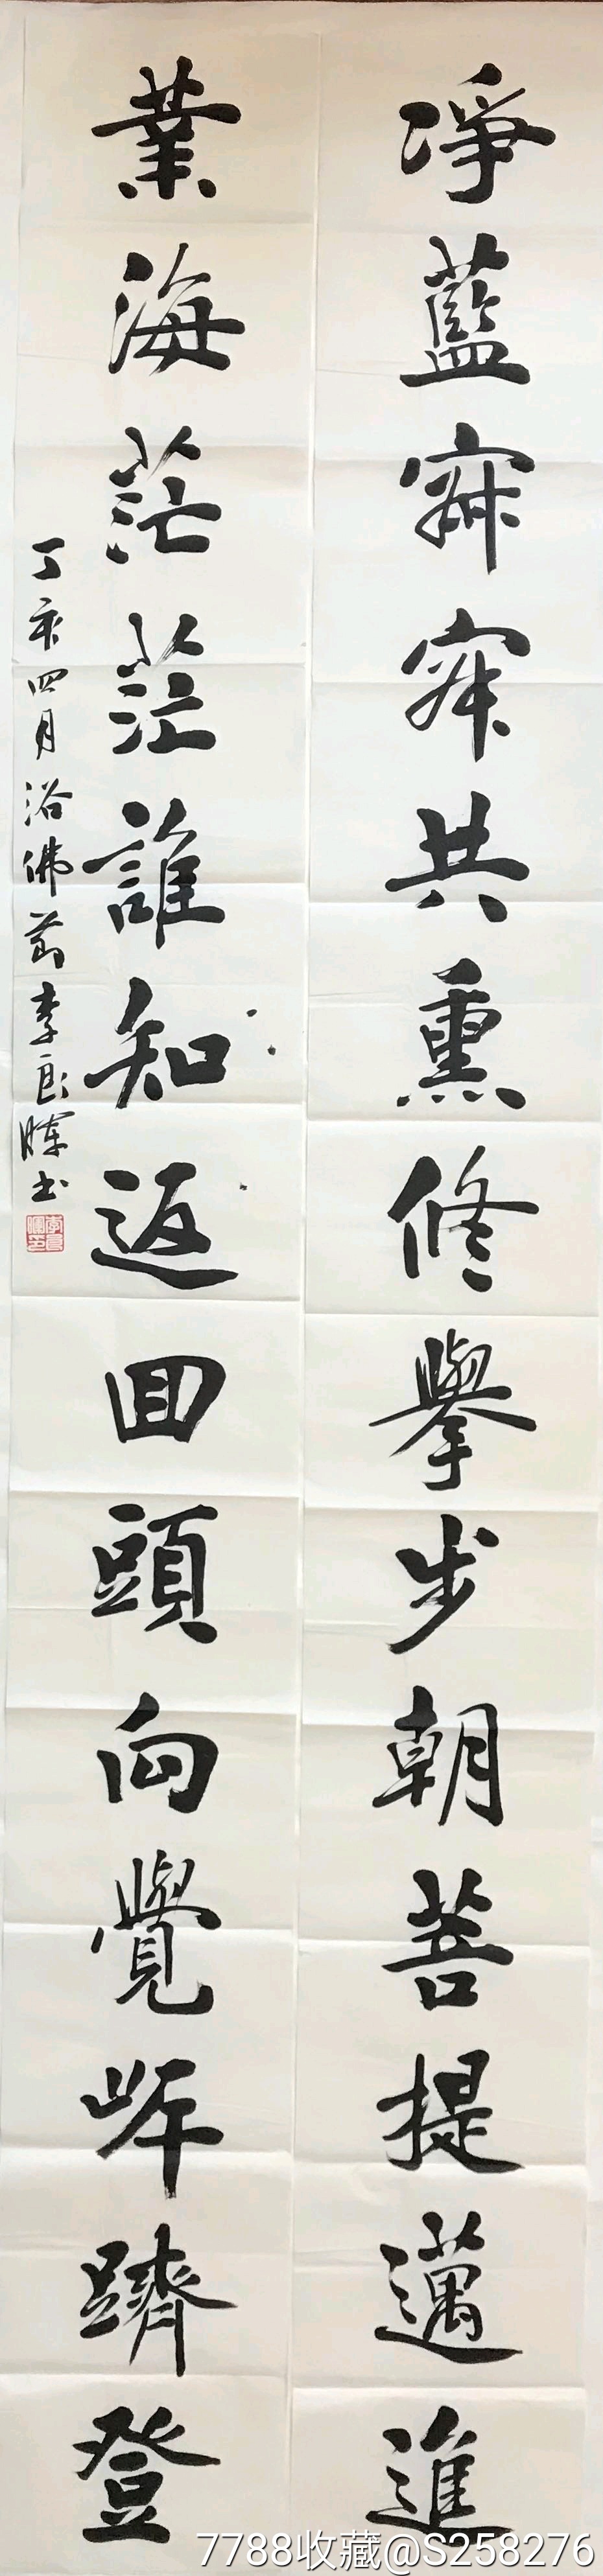 凈藍寂寂共熏修舉步朝菩提邁進
業海茫茫誰知返回頭向覺岸躋登
丁亥四月浴佛節李良暉书
7788收藏@S258276